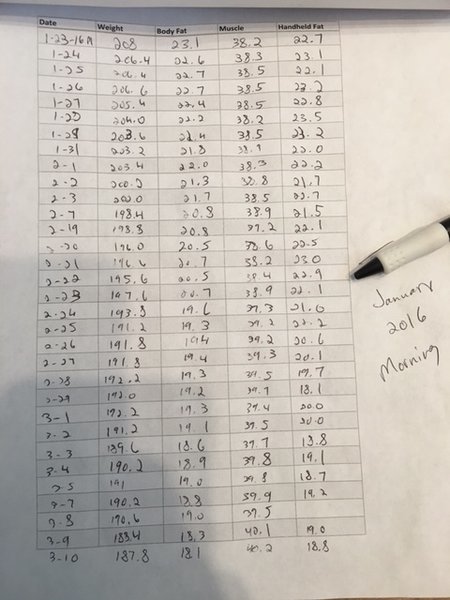 Date Weight Body Fat Muscle Handheld Fat
1-23-16 M 208 23.1 38.2 22.7
1-24 206.4 22.6 38.3 23.1
1-25 206.4 22.7 38.5 22.1
1-26 206.6 22.7 38.5 23.2
1-27 205.4 22.4 38.5 22.8
204.0 22.2 38.2 23.5
203.6 22.4 38.5 23.2
1-31 203.2 21.8 22.0
2-1 203.4 22.0 38.3 22.2
2-2 200.2 21.3 38.8 21.7
2-3 21.7 38.5 22.7
2-7 198.4 20.8 38.9 21.5
2-19 198.8 20.8 22.1
2-20 196.0 20.5 38.6 22.5
2-21 196.6 20.7 38.2 23.0
2-22 195.6 20.5 38.4 22.9
2-23 197.6 20.7 38.9 22.1
2-24 193.8 19.6 39.3 21.0
2-25 191.2 19.3 39.2 22.2
2-26 191.8 19.4 39.2 20.6
2-27 191.8 19.4 39.3 20.1
2-28 192.2 19.3 39.5 19.7
2-29 192.0 19.2 18.1
3-1 192.2 19.3 39.4 20.0
3-2 191.2 19.1 39.5 20.0
3-3 189.6 18.6 39.7 18.8
3-4 190.2 18.9 39.8 19.1
3-5 191 19.0 39.8 18.7
3-7 190.2 18.8 39.9 19.2
3-8 190.6 19.0 39.5
3-9 188.4 18.3 40.1 19.0
3-10 187.8 18.1 40.2 18.8
January
2016
Morning